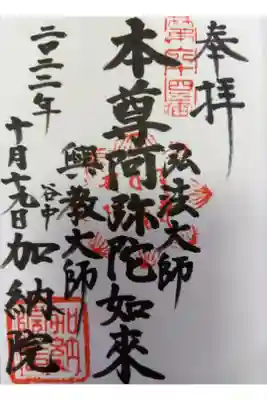 奉拝
弘法大師
本尊阿弥陀如來
興教大師
谷中
加納院
二〇二二年
十月十九日